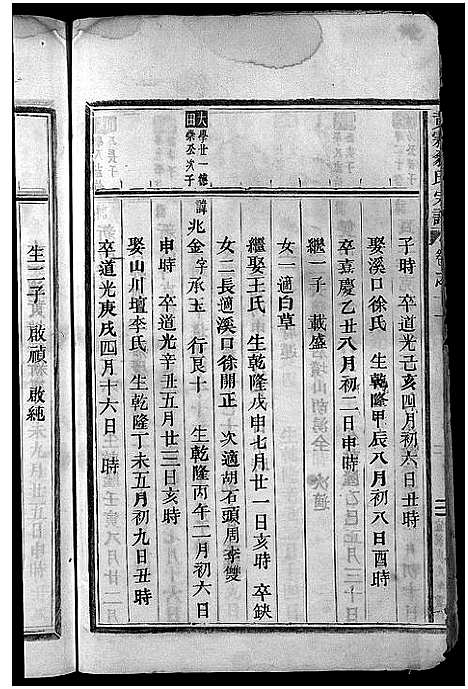 子時 卒道光己亥四月初六日丑時
娶溪口徐氏 生乾隆甲辰八月初八日酉時
卒嘉慶乙丑八月初二日申時
繼一子 載盛
女一適白草
繼娶王氏 生乾隆戊申七月廿一日亥時 卒缺
女二長適溪口徐開正 次適胡石頭周李雙
大田
學廿一德
崇丕次子
諱兆金 字承玉 行艮十一 生乾隆丙午二月初六日
申時 卒道光辛丑五月廿三日亥時
娶山川壇李氏 生乾隆丁未五月初九日丑時
卒道光庚戌四月十六日 時
生二子 啟禎 啟純